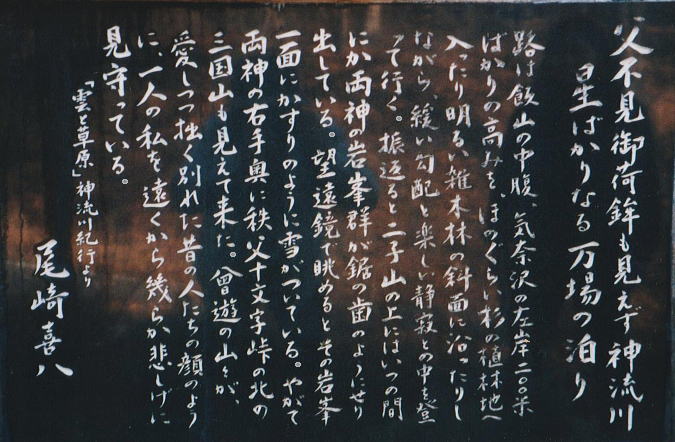 父不見御荷鉾も見えず神流川
星ばかりなる万場の泊り
路は飯山の中腹、気奈沢の左岸二〇〇米
ばかりの高みを、ほのぐらい杉の植林地へ
入ったり明るい雑木林の斜面に沿ったりし
ながら、緩い勾配と楽しい静寂との中を登
って行く。振返ると二子山の上にはいつの間
にか両神の岩峯群が鋸の歯のようにせり
出している。望遠鏡で眺めるとその岩峯
一面にかすりのように雪がついている。やがて
両神の右手奥に秩父十文字峠の北の
三国山も見えて来た。曾遊の山々が、
愛しつつ拙く別れた昔の人たちの顔のよう
に、一人の私を遠くから幾らか悲しげに
見守っている。
「雲と草原」神流川紀行より
尾崎喜八